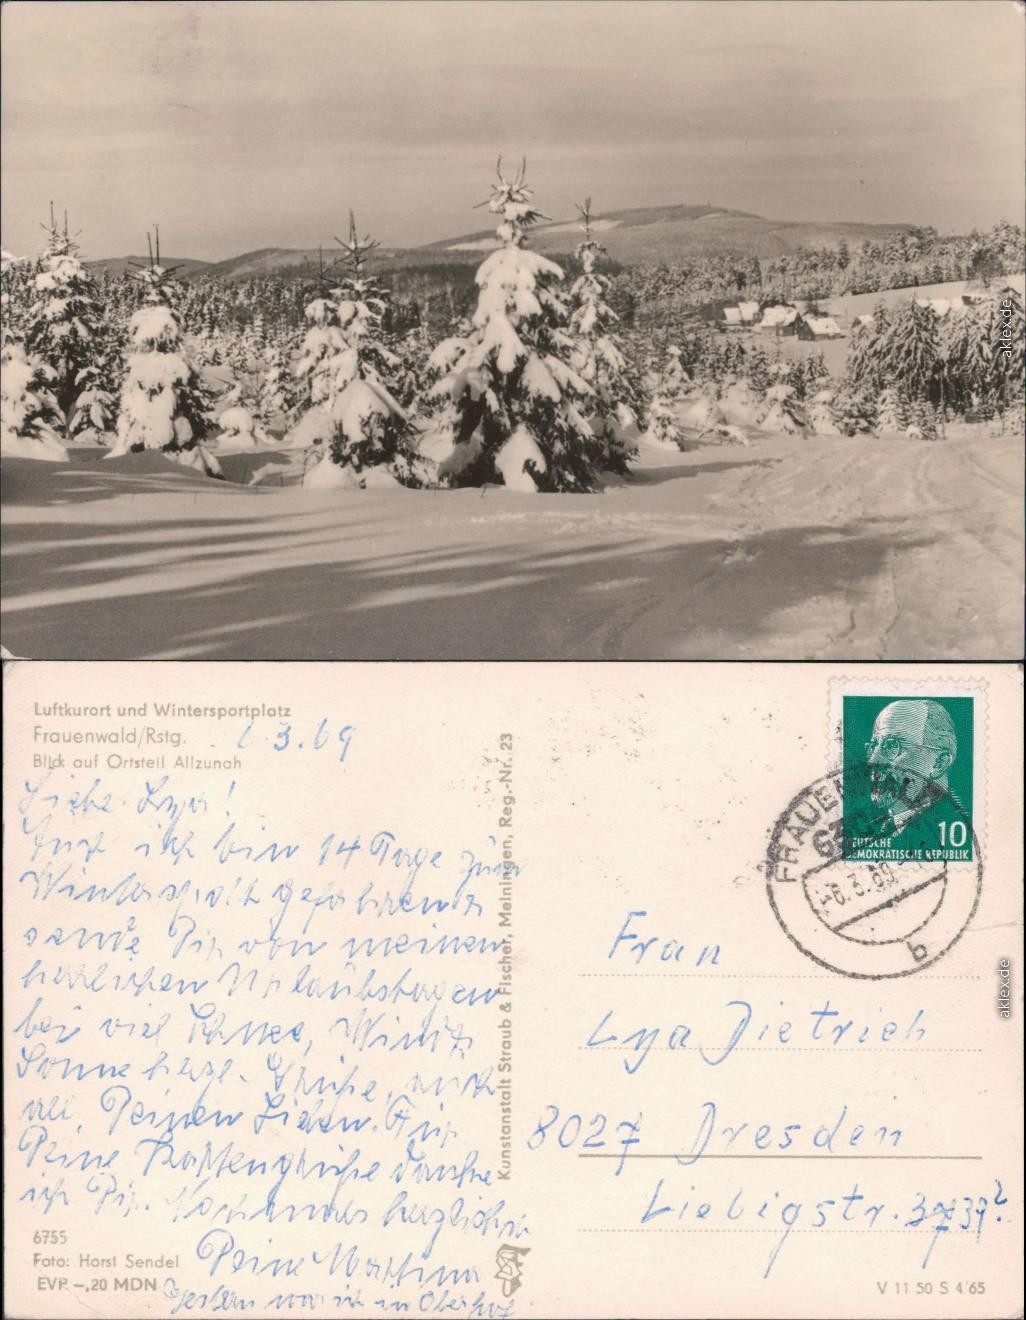 aklex.de
Luftkurort und Wintersportplatz
Frauenwald/Rstg.
Blick auf Ortsteil Allzunah
6.3.69
Liebe Lya!
Auch ich bin 14 Tage zum
Wintersport gefahren u.
sende Dir von meinen
herrlichen Urlaubstagen
bei viel Schnee, Wind u.
Sonne herzl. Grüße, auch
all. Deinen Lieben. Für
Deine Kartengrüße danke
ich Dir. Nochmals herzlichst
Deine Martina
Gestern war ich in Oberhof
6755
Foto: Horst Sendel
EVP -,20 MDN
Kunstanstalt Straub & Fischer, Meiningen, Reg.-Nr. 23
10
DEUTSCHE
DEMOKRATISCHE REPUBLIK
FRAUENWALD
-6.3.69
b
Frau
Lya Dietrich
8027 Dresden
Liebigstr. 37 39?
V 11 50 S 4/65
aklex.de